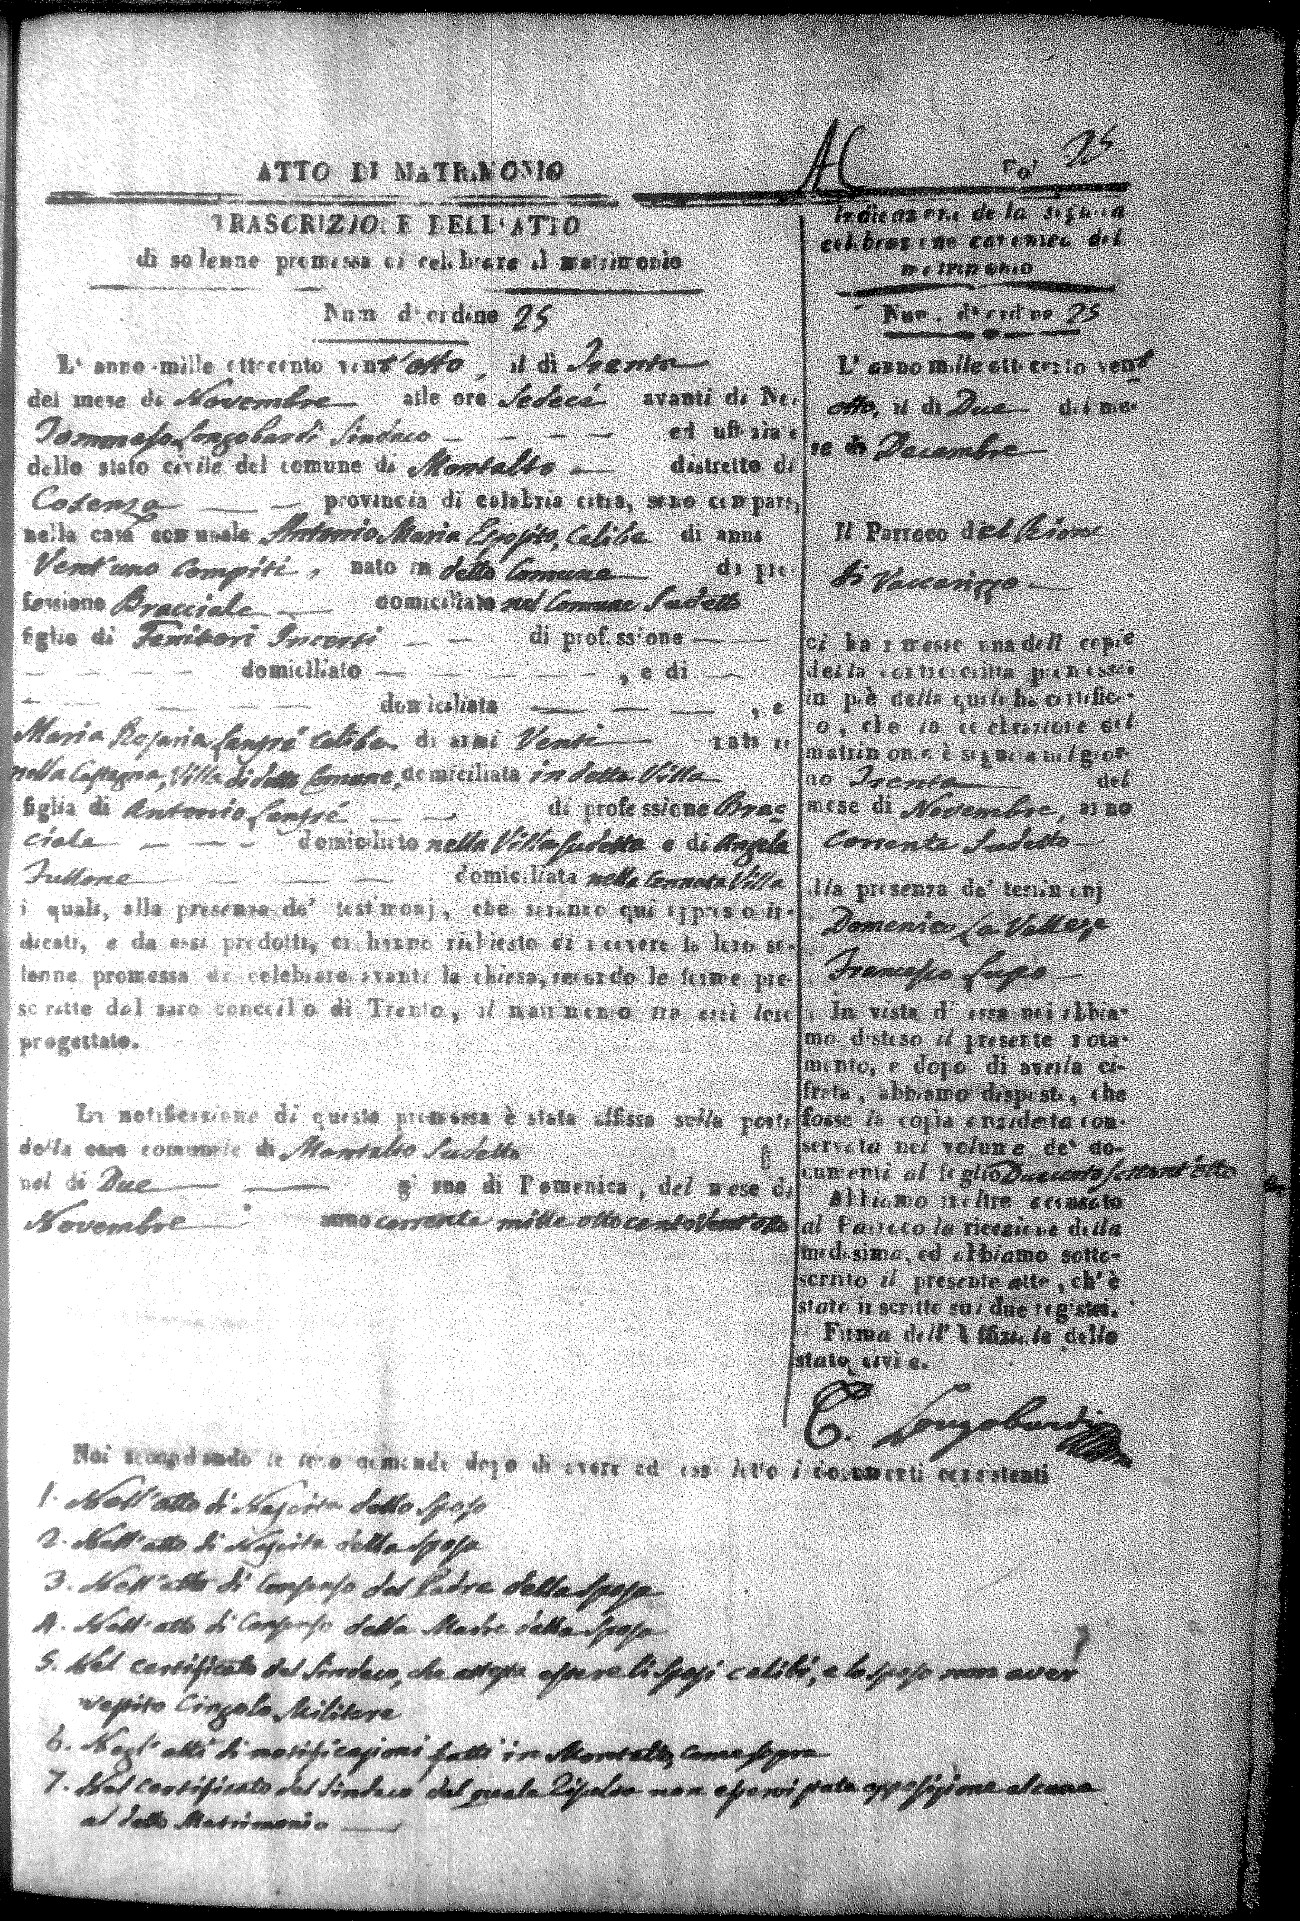 ATTO DI MATRIMONIO
Fol 25
TRASCRIZIONE DELL'ATTO
di solenne promessa di celebrare il matrimonio
Num d'ordine 25
L'anno mille ottocento vent'otto, il dì Trenta
del mese di Novembre alle ore Sedeci avanti di Noi
Tommaso Longobardi Sindaco ed uffiziale
dello stato civile del comune di Montalto distretto di
Cosenza provincia di calabria citra, sono comparsi
nella casa comunale Antonio Maria Esposito, Celibe di anni
Vent'uno Compiti, nato in detto Comune di pro-
fessione Bracciale domiciliato nel Comune Sudetto
figlio di Genitori Incerti di professione
domiciliato , e di
domiciliata , e
Maria Rosaria Sanfrè Celibe di anni Venti nata in
nella Castagna, Villa di detto Comune, domiciliata in detta Villa
figlia di Antonio Sanfrè di professione Brac
ciale domiciliato nella Villa Sudetta e di Angela
Fullone domiciliata nella cennata Villa
i quali, alla presenza de' testimonj, che saranno qui appresso in-
dicati, e da essi prodotti, ci hanno richiesto di ricevere la loro so-
lenne promessa di celebrare avanti la chiesa, secondo le forme pre-
scritte dal sacro concilio di Trento, il matrimonio tra essi loro
progettato.
La notificazione di questa promessa è stata affissa sulla porta
della casa comunale di Montalto Sudetto
nel di Due giorno di Domenica, del mese di
Novembre anno corrente mille otto cento vent'otto
Indicazione de la seguita
celebrazione canonica del
matrimonio
Num. d'ordine 25
L'anno mille ottocento vent
otto, il dì Due del me-
se di Decembre
Il Parroco del Rione
di Vaccarizzo
ci ha rimesso una delle copie
della controscritta promessa
in piè della quale ha certifica-
to, che la celebrazione del
matrimonio è seguita nel gior-
no Trenta del
mese di Novembre, anno
Corrente Sudetto
alla presenza de' testimonj
Domenico La Vallese
Francesco Lupo
In vista di essa noi abbia-
mo disteso il presente nota-
mento, e dopo di averla ci-
frata, abbiamo disposto, che
fosse la copia anzidetta con-
servata nel volume de' do-
cumenti al foglio Duecento settant'otto
Abbiamo inoltre accusato
al Parroco la ricezione della
medesima, ed abbiamo sotto-
scritto il presente atto, ch'è
stato inscritto sui due registri.
Firma dell'Uffiziale dello
stato civile.
T. Longobardi
Noi secondando le loro domande dopo di avere ad essi letto i documenti consistenti
1. Nell'atto di Nascita dello Sposo
2. Nell'atto di Nascita della Sposa
3. Nell'atto di Consenso del Padre della Sposa
4. Nell'atto di Consenso della Madre della Sposa
5. Nel certificato del Sindaco, che attesta essere li Sposi celibi, e lo sposo non aver
vestito Cingolo Militare
6. Negl'atti di notificazioni fatti in Montalto, come sopra
7. Nel certificato del Sindaco dal quale Risulta non esservi stata opposizione alcuna
al detto Matrimonio